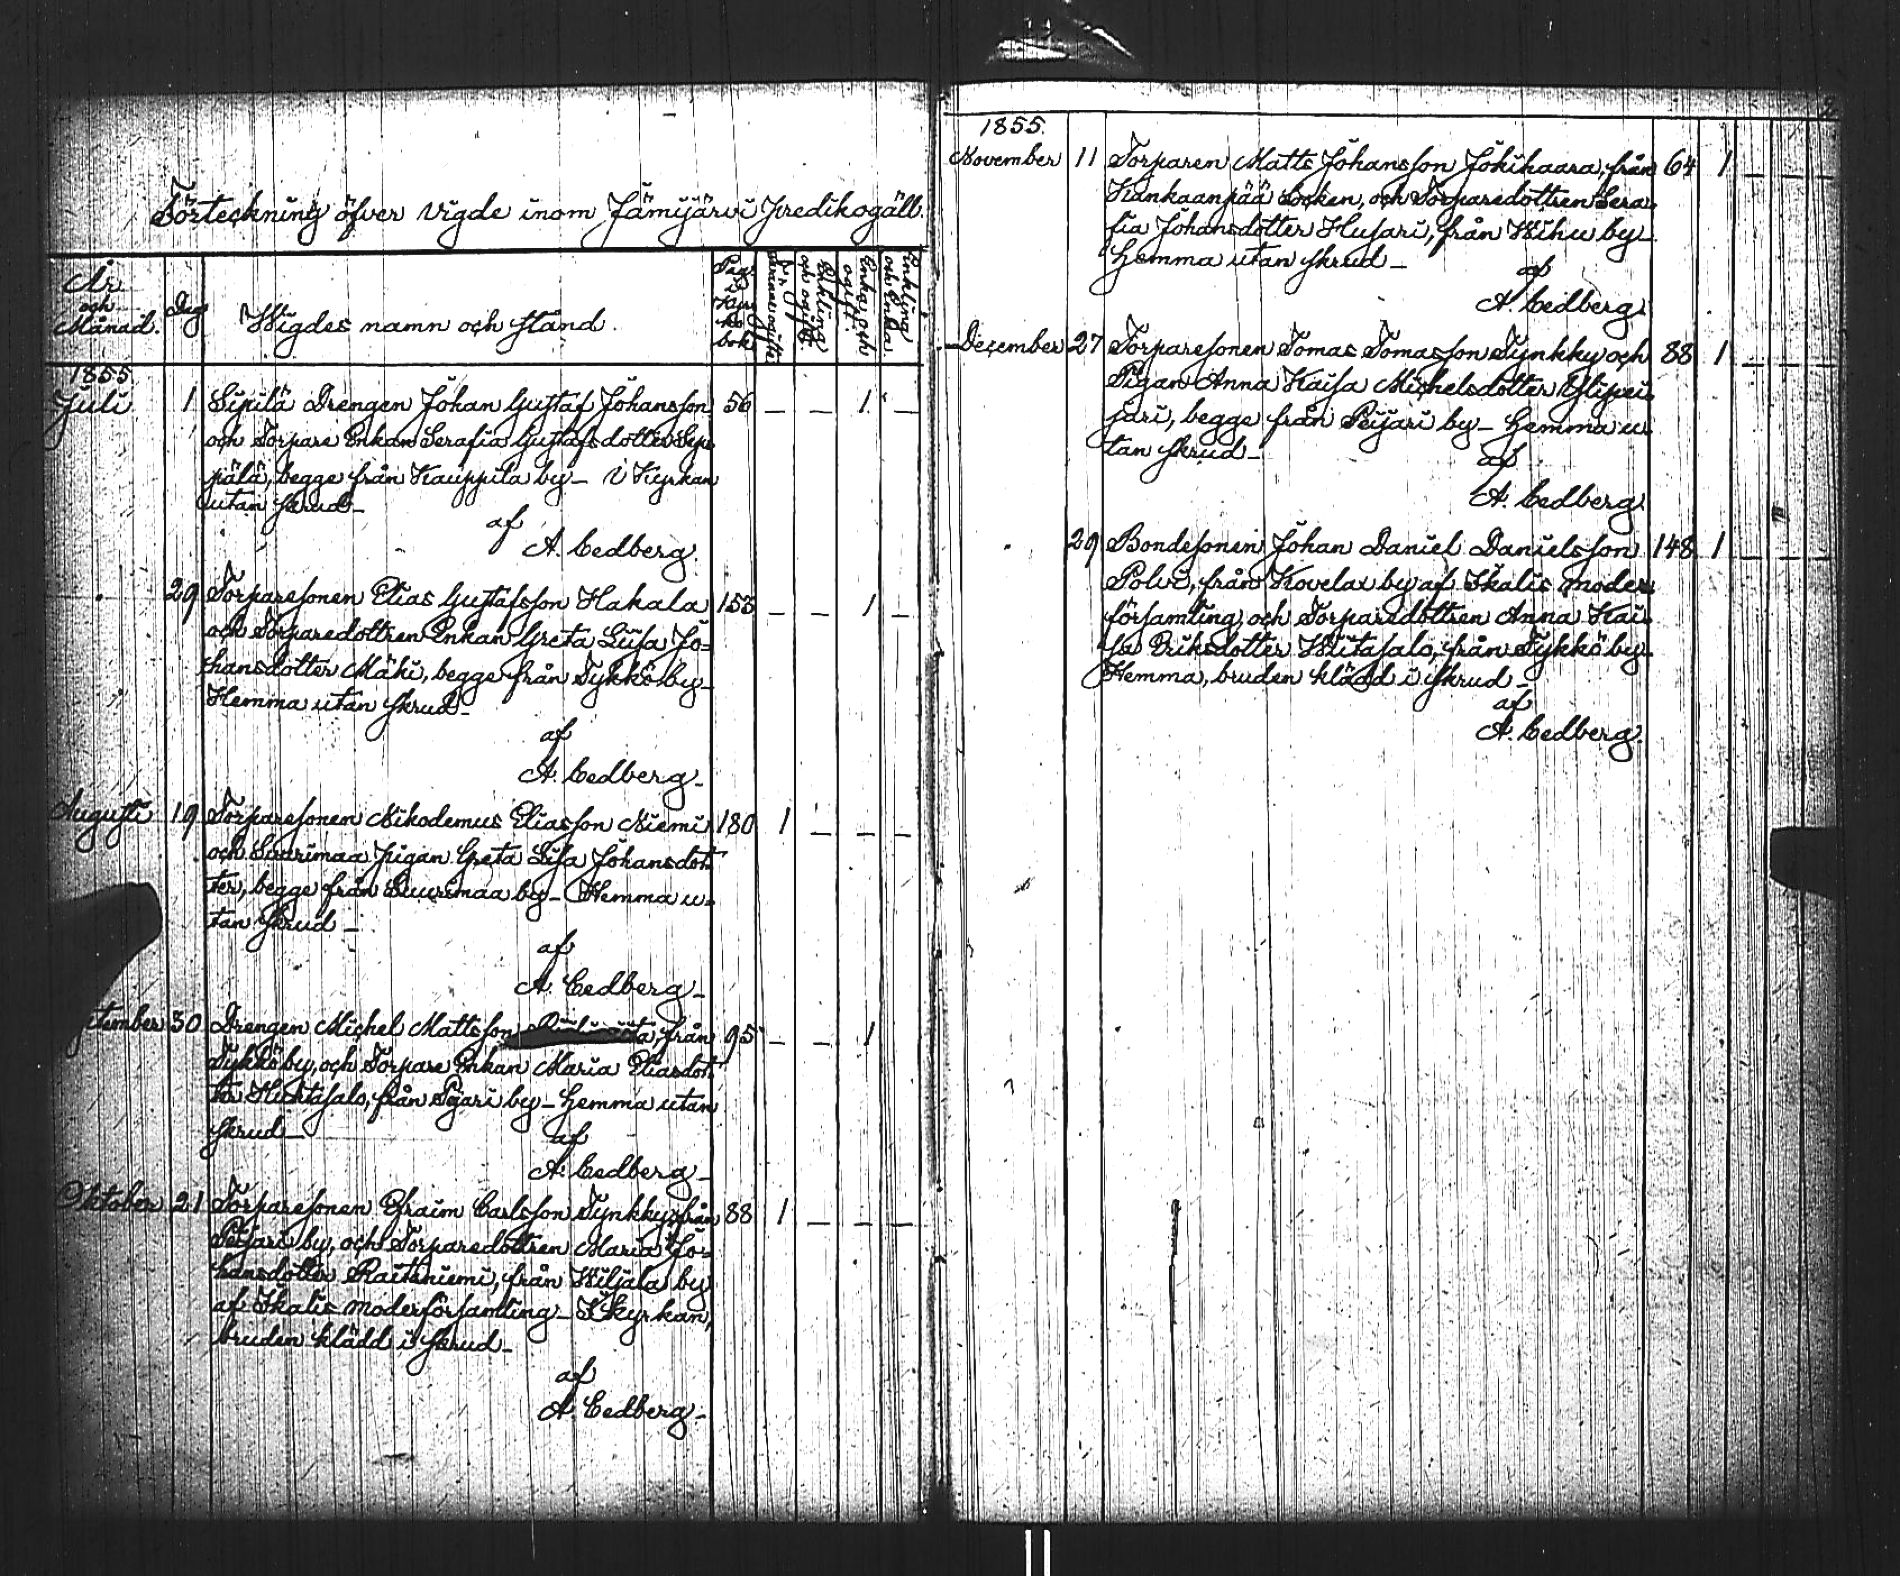 Förteckning öfver vigde inom Jämijärvi Predikogäll.
År och Månad.
Dag
Wigdes namn och stånd.
Pag. i Kyrko bok
Enkling och ogift.
Enka och ogift.
Enkling och Enka.
1855
Juli 1 Sipilä Drengen Johan Gustaf Johansson 56 – – 1 –
och Torpare Enkan Serafia Gustafsdotter Sep-
pälä, begge från Kauppila by – i Kyrkan
utan skrud –
af
A. Cedberg.
29 Torparesonen Elias Gustafsson Hakala 153 – – 1 –
och Torparedottren Enkan Greta Liisa Jo=
hansdotter Mäki, begge från Tykkö by –
Hemma utan skrud –
af
A. Cedberg –
Augusti 19 Torparesonen Nikodemus Eliasson Niemi 180 1 – – –
och Suurimaa pigan Greta Lisa Johansdot=
ter, begge från Suurimaa by – Hemma u=
tan skrud –
af
A. Cedberg –
tember 30 Drengen Michel Mattsson från 95 – – 1
Tykkö by, och Torpare Enkan Maria Eliasdot=
ter Hietasalo, från Pejari by – Hemma utan
skrud –
af
A. Cedberg –
Oktober 21 Torparesonen Efraim Carlsson Tynkky, från 88 1 – – –
Peijari by, och Torparedottren Maria Jo=
hansdotter Raitaniemi, från Wiljala by
af Ikalis moderförsamling – I Kyrkan,
bruden klädd i skrud –
af
A. Cedberg –
1855.
November 11 Torparen Matts Johansson Jokihaara, från 64 1 – – –
Kankaanpää Socken, och Torparedottren Sera=
fia Johansdotter Husari, från Wihu by –
Hemma utan skrud –
af
A. Cedberg.
December 27 Torparesonen Tomas Tomasson Tynkky och 88 1 – – –
Pigan Anna Kaisa Michelsdotter Ylipei=
jari, begge från Peijari by – Hemma u=
tan skrud –
af
A. Cedberg.
29 Bondesonen Johan Daniel Danielsson 148 1 – – –
Polvi, från Kovelax by af Ikalis moder=
församling, och Torparedottren Anna Kai=
sa Eriksdotter Wiitasalo, från Tykkö by –
Hemma, bruden klädd i skrud –
af
A. Cedberg.